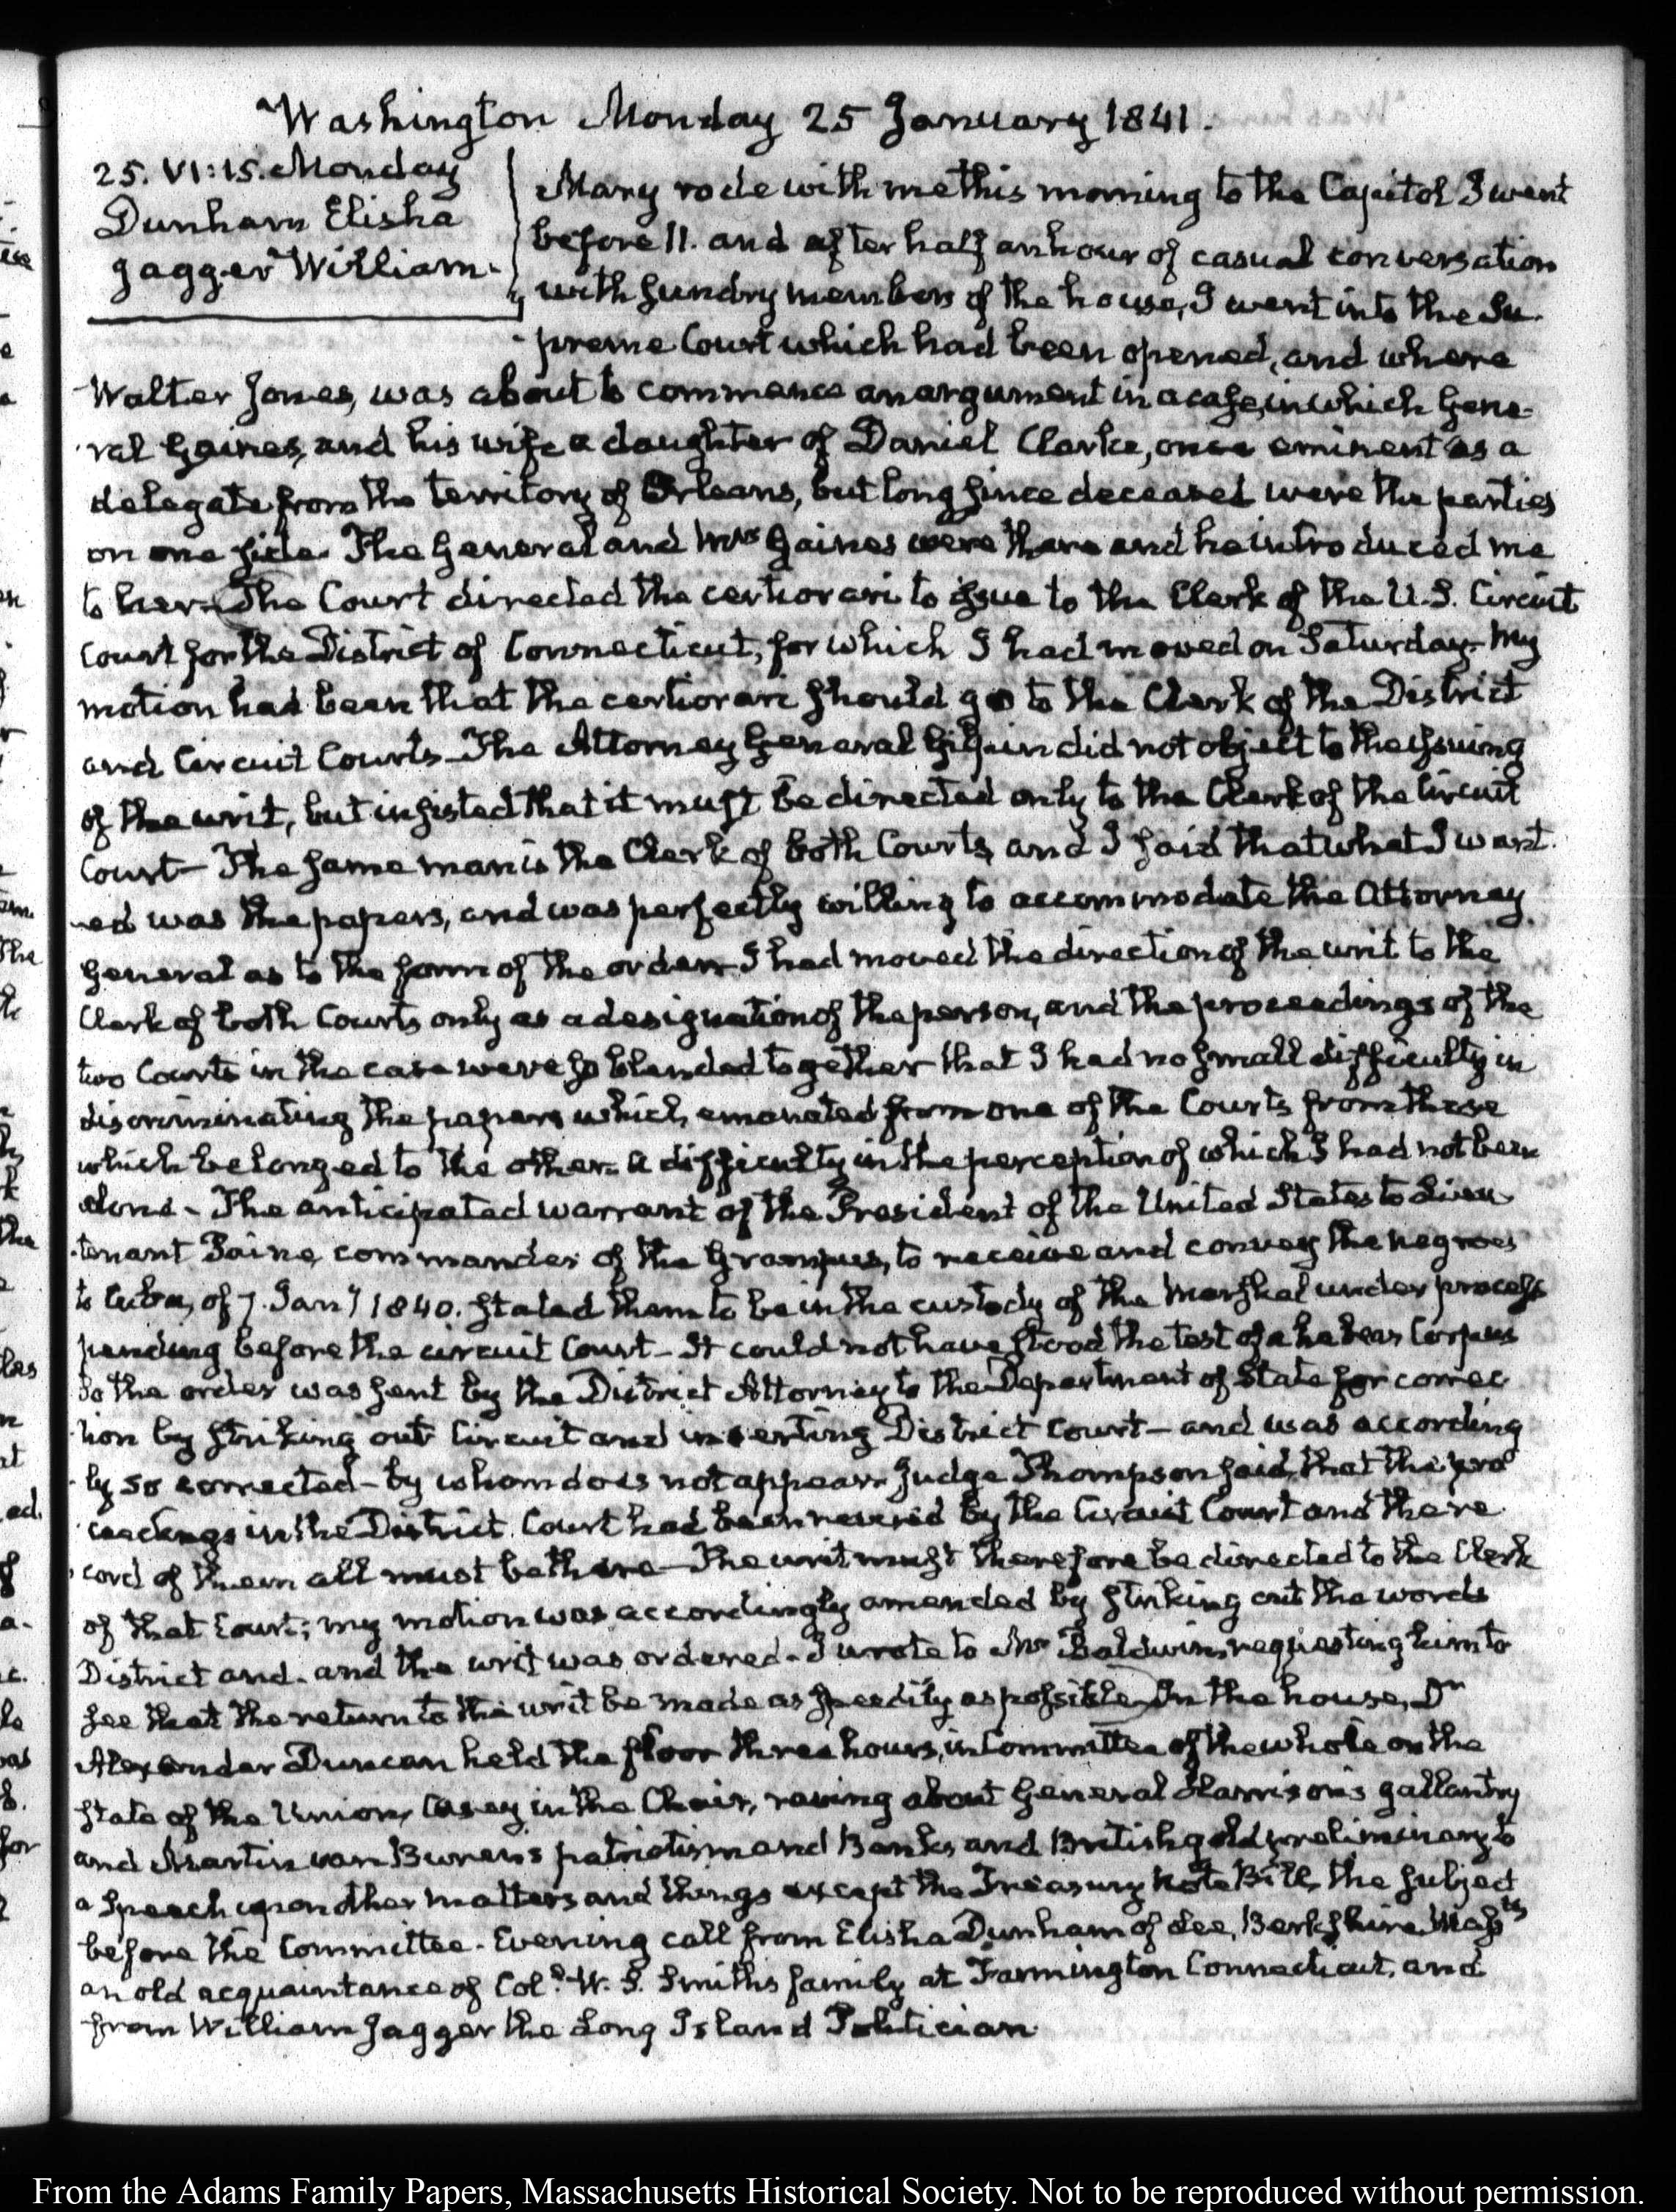 Washington Monday 25 January 1841.
25. VI:15. Monday
Dunham Elisha
Jagger William.
Mary rode with me this morning to the Capitol I went
before 11. and after half an hour of casual conversation
with sundry members of the house, I went into the Su-
preme Court which had been opened, and where
Walter Jones, was about to commence an argument in a case, in which Gene-
ral Gaines, and his wife a daughter of Daniel Clarke, once eminent as a
delegate from the territory of Orleans, but long since deceased were the parties
on one side. The General and Mrs Gaines were there and he introduced me
to her. The Court directed the certiorari to issue to the Clerk of the U.S. Circuit
Court for the District of Connecticut, for which I had moved on Saturday. My
motion had been that the certiorari should go to the Clerk of the District
and Circuit Courts. The Attorney General Gilpin did not object to the issuing
of the writ, but insisted that it must be directed only to the Clerk of the Circuit
Court— The same man is the Clerk of both Courts, and I said that what I want-
ed was the papers, and was perfectly willing to accommodate the Attorney
General as to the form of the order. I had moved the direction of the writ to the
Clerk of both Courts only as a designation of the person, and the proceedings of the
two Courts in the case were so blended together that I had no small difficulty in
discriminating the papers which emanated from one of the Courts from those
which belonged to the other. a difficulty in the perception of which I had not been
alone - The anticipated warrant of the President of the United States to Lieu-
tenant Paine, commander of the Grampus, to receive and convey the negroes
to Cuba, of 7. Jany 1840. stated them to be in the custody of the Marshal under process
pending before the circuit Court - It could not have stood the test of a habeas Corpus
so the order was sent by the District Attorney to the Department of State for correc-
tion by striking out Circuit and inserting District Court - and was according-
ly so corrected - by whom does not appear. Judge Thompson said, that the pro-
ceedings in the District Court had been revised by the Circuit Court and the re-
cord of them all must be there - The writ must therefore be directed to the Clerk
of that Court; my motion was accordingly amended by striking out the words
District and. and the writ was ordered. I wrote to Mr Baldwin, requesting him to
see that the return to the writ be made as speedily as possible In the house, Dr
Alexander Duncan held the floor three hours, in Committee of the whole on the
state of the Union, Casey in the Chair, raving about General Harrison's gallantry
and Martin van Buren's patriotism and Banks and British gold, preliminary to
a speech upon other matters and things except the Treasury Note Bill, the subject
before the Committee. Evening call from Elisha Dunham of Lee, Berkshire Massts
an old acquaintance of Col. W. S. Smith's family at Farmington Connecticut, and
from William Jagger the Long Island Politician
From the Adams Family Papers, Massachusetts Historical Society. Not to be reproduced without permission.